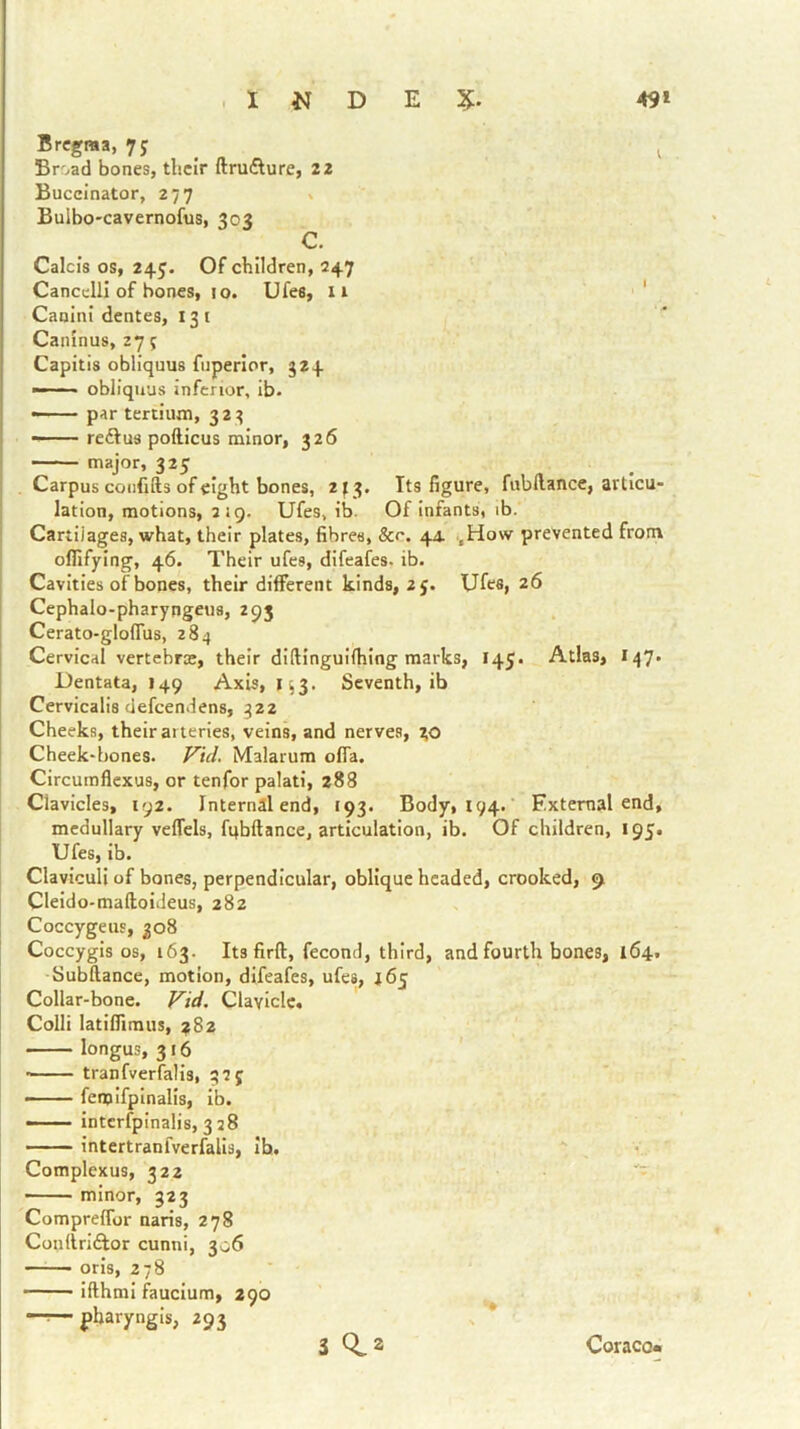 INDEX. 491
Bregma, 75
Broad bones, their ſtructure, 22
Buccinator, 277
Bulbo-cavernoſus, 303
C.
Calcis os, 245. Of children, 247
Cancelli of bones, 10. Uſes, 11
Canini dentes, 131
Caninus, 275
Capitis obliquus ſuperior, 324
—— obliquus inferior, ib.
—— par tertium, 323
—— rectus poſticus minor, 326
—— major, 325
Carpus conſiſts of eight bones, 213. Its figure, ſubſtance, articu-
lation, motions, 219. Uſes, ib. Of infants, ib.
Cartilages, what, their plates, fibres, &c. 44. How prevented from
oſſifying, 46. Their uſes, diſeaſes, ib.
Cavities of bones, their different kinds, 25. Uſes, 26
Cephalo-pharyngeus, 293
Cerato-gloſſus, 284
Cervical vertebræ, their diſtinguiſhing marks, 145. Atlas, 147.
Dentata, 149 Axis, 153. Seventh, ib
Cervicalis deſcendens, 322
Cheeks, their arteries, veins, and nerves, 30
Cheek-bones. Vid. Malarum oſſa.
Circumflexus, or tenſor palati, 288
Clavicles, 192. Internal end, 193. Body, 194. External end,
medullary veſſels, ſubſtance, articulation, ib. Of children, 195.
Uſes, ib.
Claviculi of bones, perpendicular, oblique headed, crooked, 9
Cleido-maſtoideus, 282
Coccygeus, 308
Coccygis os, 163. Its firſt, ſecond, third, and fourth bones, 164.
Subſtance, motion, diſeaſes, uſes, 165
Collar-bone. Vid. Clavicle.
Colli latiſſimus, 282
—— longus, 316
—— tranſverſalis, 325
—— ſemiſpinalis, ib.
—— interſpinalis, 328
—— intertranſverſalis, ib.
Complexus, 322
—— minor, 323
Compreſſor naris, 278
Conſtrictor cunni, 306
—— oris, 278
—— iſthmi faucium, 290
—— pharyngis, 293
3 Q 2 Coraco-